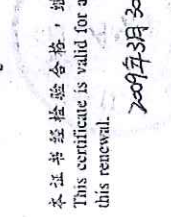 本证书经检验合格，继
This certificate is valid for a
this renewal.
2009年3月30